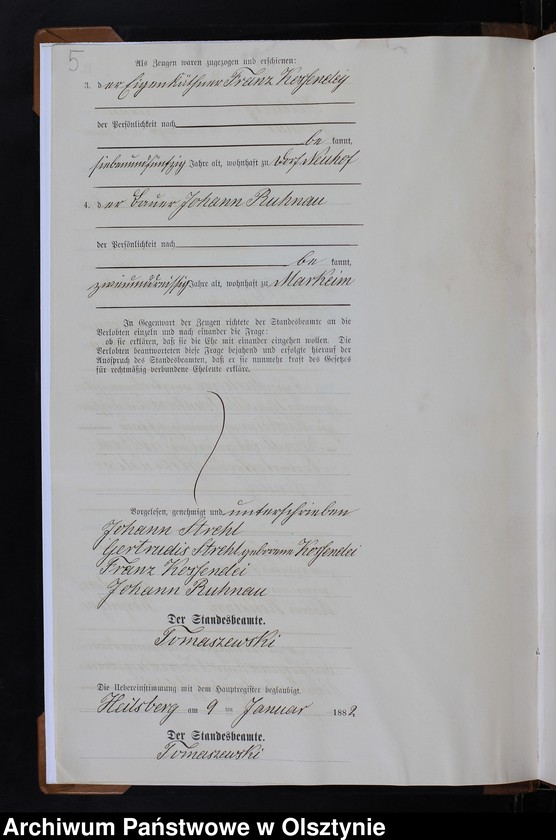 5
Als Zeugen waren zugezogen und erschienen:
3. der Eigenkäthner Franz Kossendey
der Persönlichkeit nach
be kannt,
siebenundfunfzig Jahre alt, wohnhaft zu Dorf Neuhof
4. der Bauer Johann Ruhnau
der Persönlichkeit nach
be kannt,
zweiunddreissig Jahre alt, wohnhaft zu Markeim
In Gegenwart der Zeugen richtete der Standesbeamte an die
Verlobten einzeln und nach einander die Frage:
ob sie erklären, daß sie die Ehe mit einander eingehen wollen. Die
Verlobten beantworteten diese Frage bejahend und erfolgte hierauf der
Ausspruch des Standesbeamten, daß er sie nunmehr kraft des Gesetzes
für rechtmäßig verbundene Eheleute erkläre.
Vorgelesen, genehmigt und unterschrieben
Johann Strehl
Gertrudis Strehl geborene Kossendei
Franz Kossendei
Johann Ruhnau
Der Standesbeamte.
Tomaszewski
Die Uebereinstimmung mit dem Hauptregister beglaubigt.
Heilsberg am 9 ten Januar 1882
Der Standesbeamte.
Tomaszewski
Archiwum Państwowe w Olsztynie